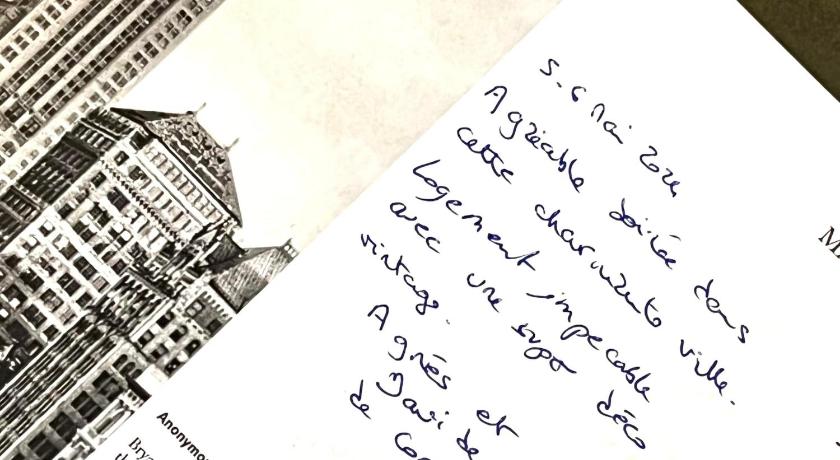 5-6 Mai 2024
Agréable soirée dans
cette charmante ville.
Logement impecable
avec une super déco
vintage.
Agnès et
de
Anonymo